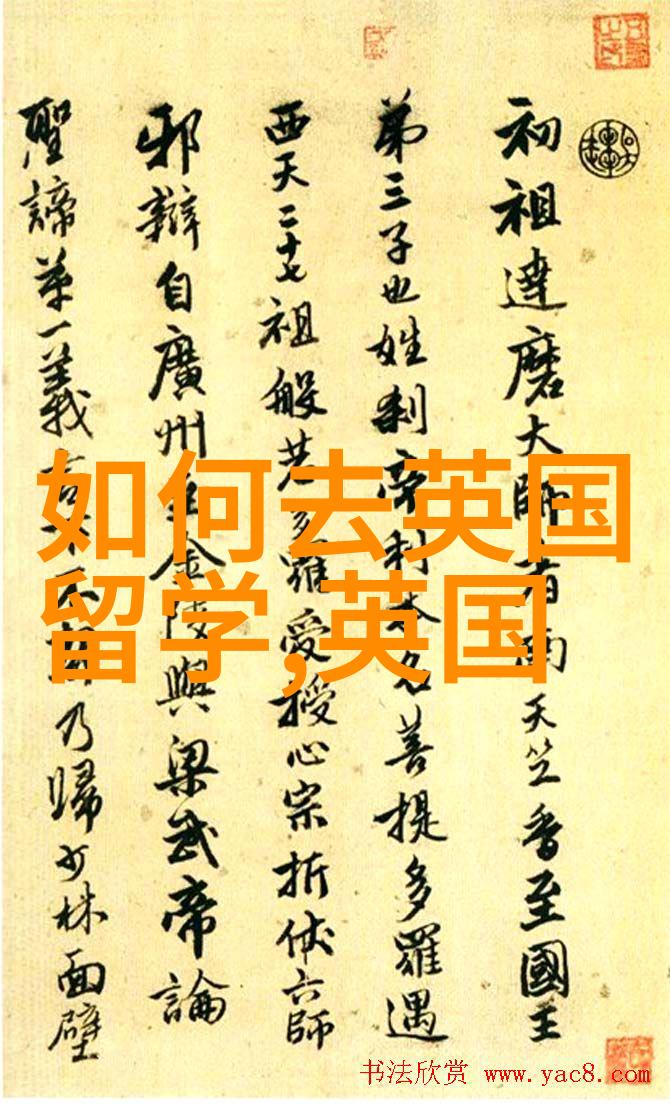 初祖達磨大師者南天竺香至國王
苐三子也姓刹帝利本名菩提多羅遇
西天二十七祖般若多羅受授心宗折伏六師
邪辯自廣州至金陵與梁武帝論
聖諦苐一義言不契乃歸少林面壁
如何去英国
留学,英国
书法欣赏 www.yac8.com